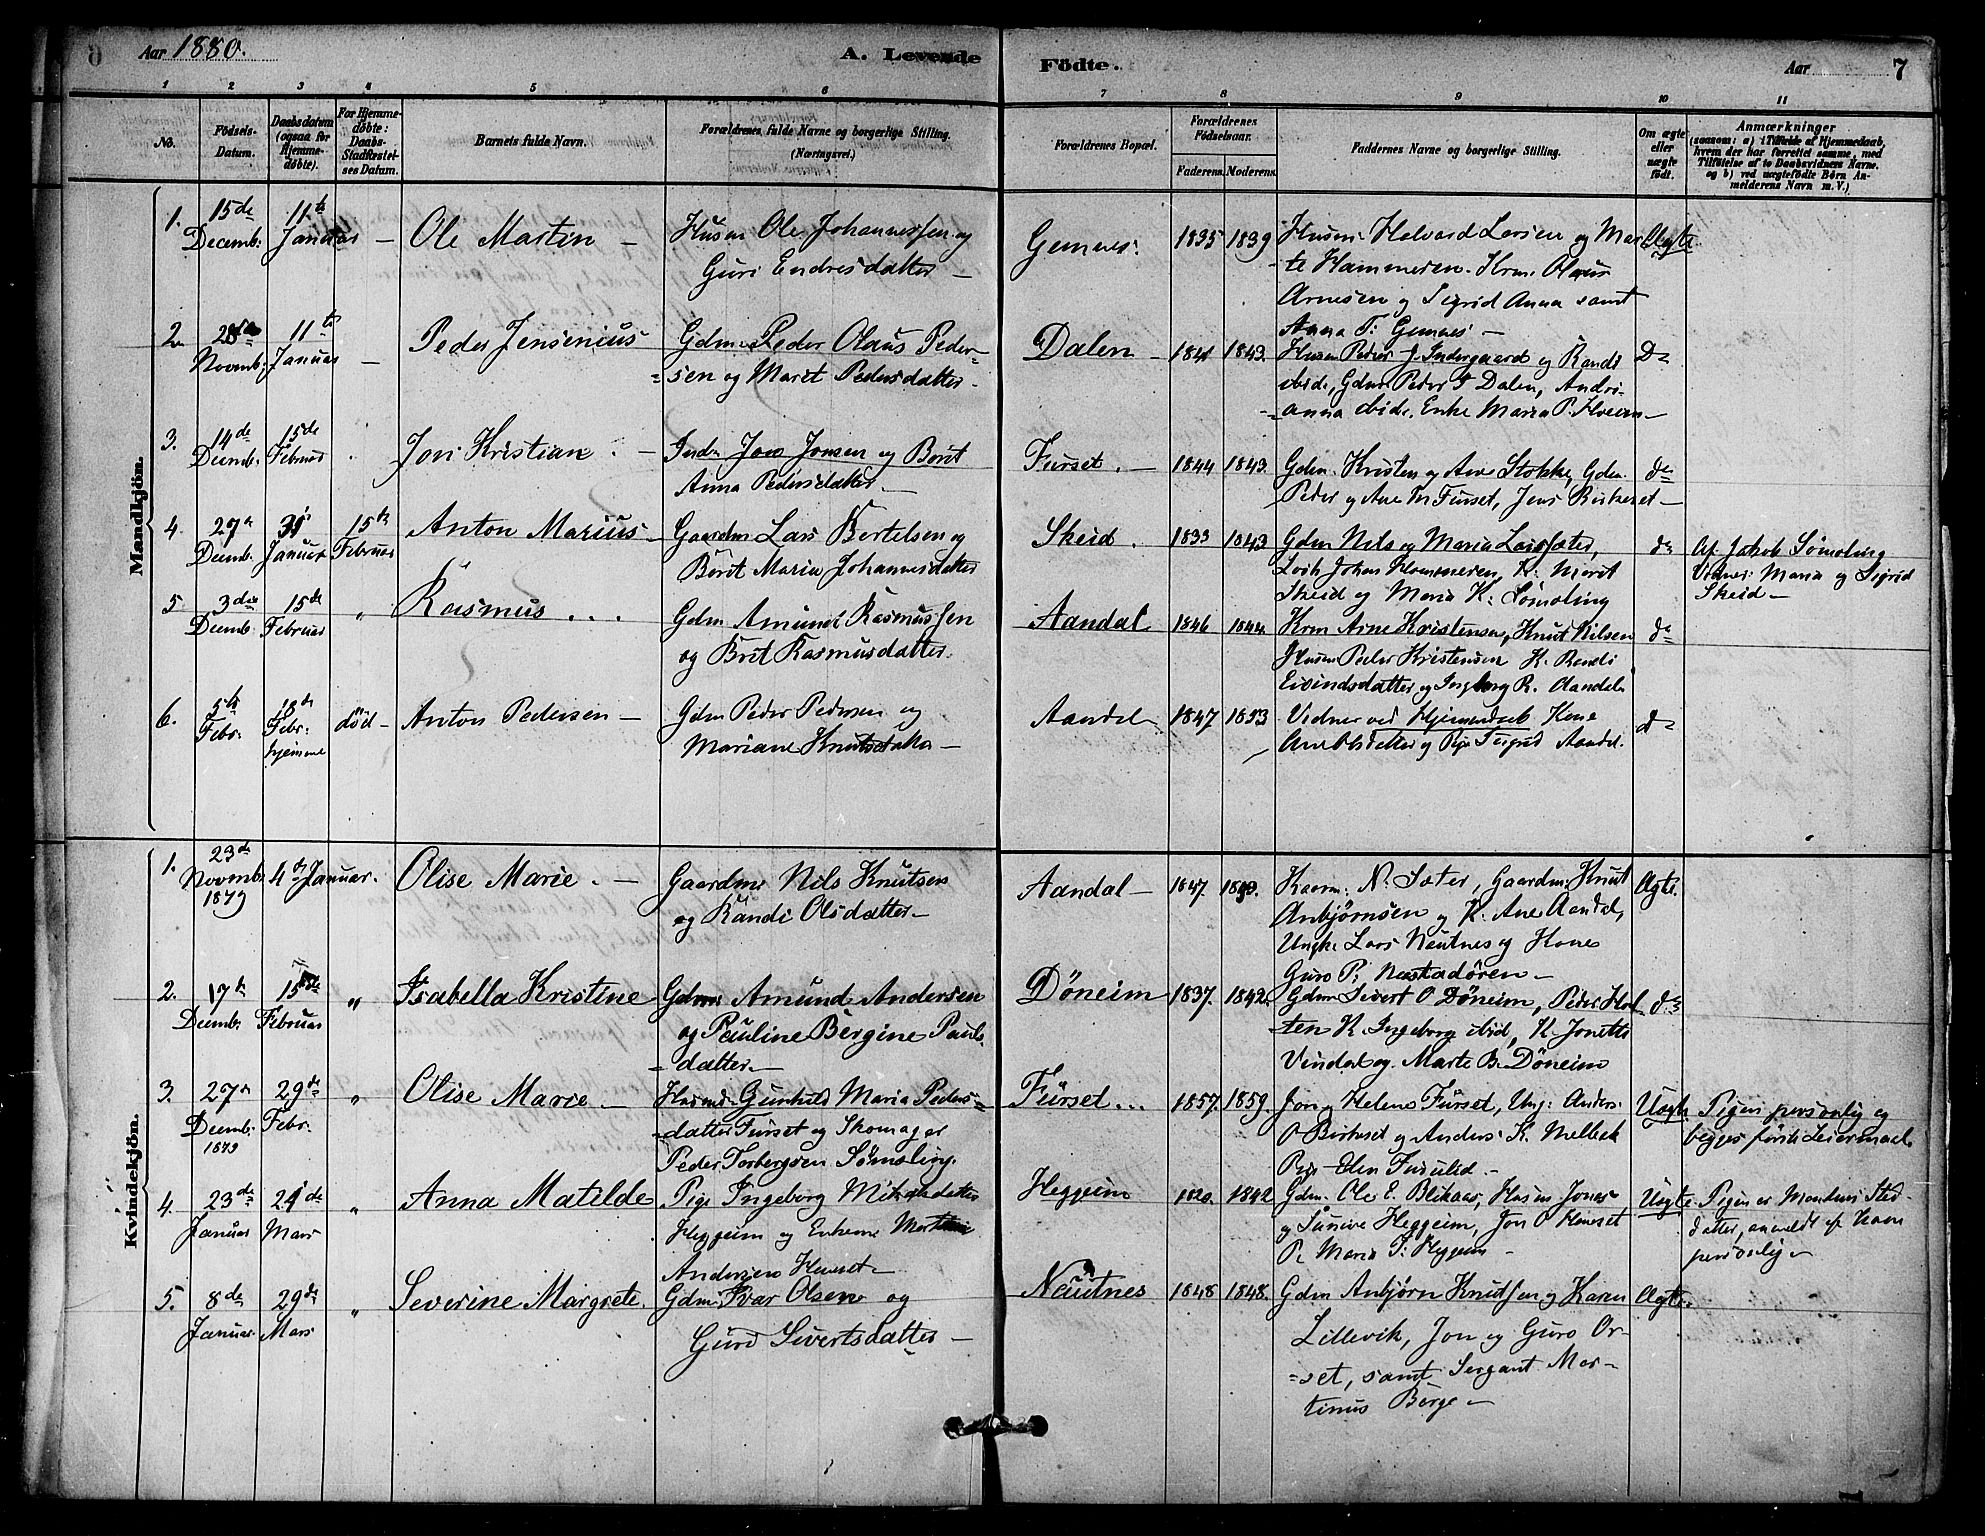 6
Aar 1880.
A. Levende
Födte.
Aar
7
1 2 3 4 5 6 7 8 9 10 11
No.
Födsels-
Datum.
Daabsdatum
(ogsaa for
Hjemme-
döbte).
For Hjemme-
döbte:
Daabs-
Stadfæstel-
ses Datum.
Barnets fulde Navn.
Forældrenes fulde Navne og borgerlige Stilling.
(Næringsvei.)
Forældrenes Bopæl.
Forældrenes
Födselsaar.
Faderens.
Moderens.
Faddernes Navne og borgerlige Stilling.
Om ægte
eller
uægte
födt.
Anmærkninger
(saasom: a) i Tilfælde af Hjemmedaab,
hvem der har forrettet samme, med
Tilföielse af to Daabsvidners Navne.
og b) ved uægtefödte Börn An-
melderens Navn m. V.)
Mandkjön.
1.
15de
Decemb:
11te
Januar
—
Ole Martin —
Husm Ole Johannessen og
Guri Endresdatter —
Gemnes.
1835
1839
Husm: Halvard Larsen og Mar-
te Hammeren. Krm: Olaus
Arnesen og Sigrid Anna samt
Anna T: Gemnes —
Ægte
2.
28de
Novemb:
11te
Januar
—
Peder Jensenius
Gdm Peder Olaus Peder-
sen og Marit Pedersdatter —
Dalen —
1841
1843.
Husm Peder J. Indergaard og Randi
ibid, Gdm Peder Dalen, Andri-
anna ibid. Enke Maria P.
Do
3.
14de
Decemb:
15de
Februar
Jon Kristian. —
Jon Jonsen og Berit
Anna Pedersdatter —
Furset. —
1844
1843.
Gdm. Kristen og Ane Stokke, Gdm.
Peder og Ane M Furset, Jens Birkeset —
do
4.
27de
Decemb:
31
Januar
15de
Februar
Anton Marius —
Gaardm Lars Bertelsen og
Berit Maria Johannesdatter
Skeid.
1833
1843
Gdm Nils og Maria Larssæter,
Johan Hammeren, K: Marit
Skeid og Maria K: Sømoling
do
Af Jakob Sømoling
Vidner: Maria og Sigrid
Skeid —
5.
3die
Decemb:
15de
Februar
"
Rasmus . . .
Gdm Amund Rasmussen
og Brit Rasmusdatter.
Aandal —
1846
1844.
Krm Arne Kristensen, Knut Nilsen
Husm Peder Kristensen K. Randi
Eivindsdatter og Ingeborg R. Aandal
do
6.
5te
Febr:
18de
Febr:
hjemme
död —
Anton Pedersen —
Gdm Peder Pedersen og
Mariane Knutsdatter —
Aandal
1847
1853
Vidner ved Hjemmedaab Kone
Ane Olsdatter og Pige Sigrid Aandal.
do
Kvindekjön.
1.
23de
Novemb:
1879
4de Januar.
Olise Marie. —
Gaardm Nils Knutsen
og Randi Olsdatter —
Aandal —
1847.
Kaarm: N. Sæter, Gaardm: Knut
Anbjørnsen og K. Ane Aandal,
Ungk. Lars Nautnes og Kone
Guro P: Nastadören —
Ægte.
2.
17de
Decemb:
15de
Februar
"
Isabella Kristine
Gdm Amund Andersen
og Pauline Bergine Pauls-
datter —
Döneim
1837.
1842.
Gdm Sivert O Döneim, Peder Hol-
ten K. Ingeborg ibid, K. Jonette
Vindal og Marte B. Döneim
do
3.
27de
Decemb:
1879
29de
Febr:
"
Olise Marie —
Gunhild Maria Peders-
datter Furset og Skomager
Peder Torbergsen Sömoling.
Furset . . .
1857.
1859.
Jon, Helene Furset, Ung: Anders
O Birkeset og Anders K. Melbek
Pige Elen Fuxulid. —
Uægte
Pigen personlig og
begges förste Leiermaal.
4.
23de
Januar
21de
Mars
"
Anna Matilde
Pige Ingeborg Mikalsdatter
Heggeim og Enkem Martin
Andersen Heuset —
Heggeim
1820.
1842
Gdm. Ole E. Blikaas, Husm Jonas
og Sunive Heggeim, Jon O Heuset
P. Maria I: Heggeim —
Uægte
Pigen er Mandens Sted-
datter, anmeldt af ham
personlig —
5.
8de
Januar.
29de
Mars
"
Severine Margrete
Gdm. Ivar Olsen og
Guro Sivertsdatter —
Nautnes
1848
1848.
Gdm Anbjørn Knudsen og Karen
Lillevik, Jon og Guro Or-
set, samt Sergant Mar-
tinus Berge —
Ægte.